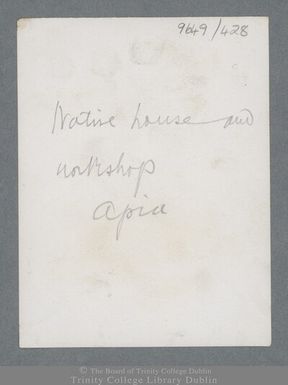 9649/428
Native house and
workshop
Apia
© The Board of Trinity College Dublin
Trinity College Library Dublin